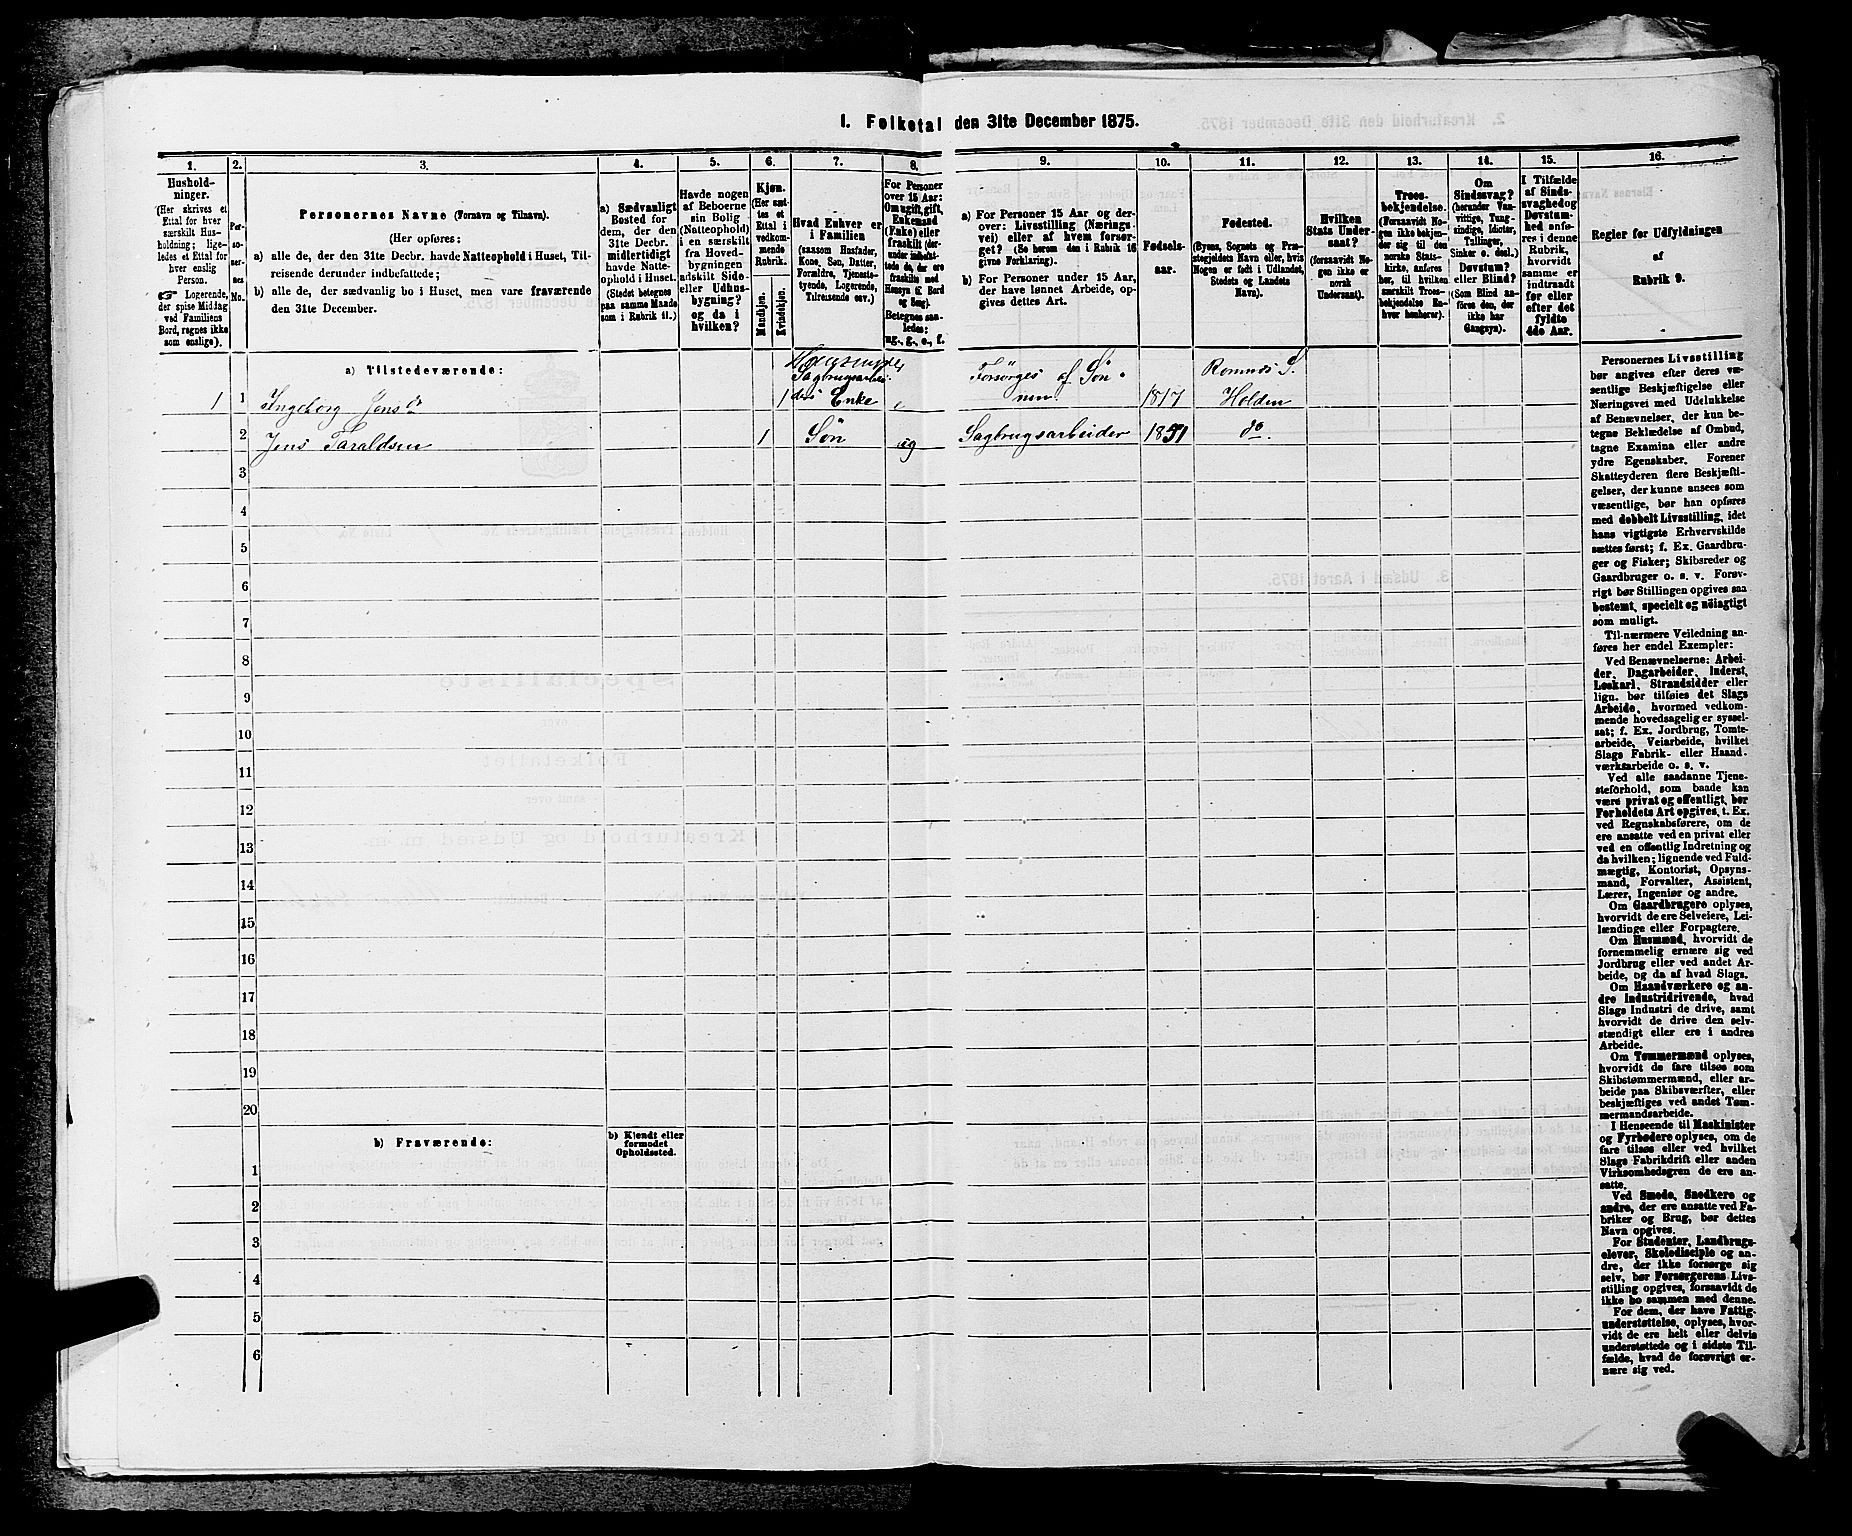 1. Folketal den 31te December 1875.
1. 2. 3. 4. 5. 6. 7. 8. 9. 10. 11. 12. 13. 14. 15. 16.
Hushold-
ninger.
(Her skrives et
Ettal for hver
særskilt Hus-
holdning; lige-
ledes et Ettal for
hver enslig
Person.
☞ Logerende,
der spise Middag
ved Familiens
Bord, regnes ikke
som enslige).
Per-
so-
ner-
nes
No.
Personernes Navne (Fornavn og Tilnavn).
(Her opføres:
a) alle de, der den 31te Decbr. havde Natteophold i Huset, Til-
reisende derunder indbefattede;
b) alle de, der sædvanlig bo i Huset, men vare fraværende
den 31te December.
a) Sædvanligt
Bosted for
dem, der den
31te Decbr.
midlertidigt
havde Natte-
ophold i Huset.
(Stedet betegnes
paa samme Maade
som i Rubrik 11.)
Havde nogen
af Beboerne
sin Bolig
(Natteophold)
i en særskilt
fra Hoved-
bygningen
adskilt Side-
eller Udhus-
bygning?
og da i
hvilken?
Kjøn.
(Her sæt-
tes et
Ettal i
vedkom-
mende
Rubrik.
Mandkjøn.
Kvindekjøn.
Hvad Enhver er
i Familien
(saasom Husfader,
Kone, Søn, Datter,
Forældre, Tjeneste-
tyende, Logerende,
Tilreisende osv.)
For Personer
over 15 Aar:
Om ugift, gift,
Enkemand
(Enke) eller
fraskilt (der-
under indbefat-
tede de, der ere
fraskilte med
Hensyn til Bord
og Seng).
Betegnes saa-
ledes:
ug., g., e., f.
a) For Personer 15 Aar og der-
over: Livsstilling (Nærings-
vei) eller af hvem forsør-
get? (Se herom den i Rubrik 16
givne Forklaring).
b) For Personer under 15 Aar,
der have lønnet Arbeide, op-
gives dettes Art.
Fødsels-
aar.
Fødested.
(Byens, Sognets og Præ-
stegjeldets Navn eller, hvis
Nogen er født i Udlandet,
Stedets og Landets
Navn).
Hvilken
Stats Under-
saat?
(forsaavidt No-
gen ikke er
norsk
Undersaat).
Troes-
bekjendelse.
(Forsaavidt No-
gen ikke bekjen-
der sig til den
norske Stats-
kirke, anføres
her, til hvilken
særskilt Troes-
bekjendelse En-
hver henhører).
Om
Sindssvag?
(herunder Van-
vittige, Tung-
sindige, Idioter,
Tullinger,
Sinker o. desl.)
Døvstum?
eller Blind?
(Som Blind an-
føres den, der
ikke har
Gangsyn).
I Tilfælde
af Sinds-
svaghed og
Døvstum-
hed anfø-
res i denne
Rubrik,
hvorvidt
samme er
indtraadt
før eller
efter det
fyldte
4de Aar.
Regler for Udfyldningen
af
Rubrik 9.
a) Tilstedeværende:
Sagbrugsarbei- Forsørges af Søn- Romnæs S.
1 1 Ingeborg Jensdr 1 ders Enke e nen. 1817 Holden
2 Jens Taraldsen 1 Søn ug Sagbrugsarbeider 1851 do.
3
4
5
6
7
8
9
10
11
12
13
14
15
16
17
18
19
20
b) Fraværende:
b) Kjendt eller
formodet
Opholdssted.
1
2
3
4
5
6
Personernes Livsstilling
bør angives efter deres væ-
sentlige Beskjæftigelse eller
Næringsvei med Udelukkelse
af Benævnelser, der kun be-
tegne Beklædelse af Ombud,
tagne Examina eller andre
ydre Egenskaber. Forener
Skatteyderen flere Beskjæfti-
gelser, der kunne ansees som
væsentlige, bør han opføres
med dobbelt Livsstilling, idet
hans vigtigste Erhvervskilde
sættes først; f. Ex. Gaardbru-
ger og Fisker; Skibsreder og
Gaardbruger o. s. v. Forøv-
rigt bør Stillingen opgives saa
bestemt, specielt og nöiagtigt
som muligt.
Til nærmere Veiledning an-
føres her endel Exempler:
Ved Benævnelserne: Arbei-
der, Dagarbeider, Inderst,
Løskarl, Strandsidder eller
lign. bør tilføies det Slags
Arbeide, hvormed vedkom-
mende hovedsagelig er syssel-
sat; f. Ex. Jordbrug, Tomte-
arbeide, Veiarbeide, hvilket
Slags Fabrik- eller Haand-
værksarbeide o. s. v.
Ved alle saadanne Tjene-
steforhold, som baade kan
være privat og offentligt, bør
Forholdets Art opgives, t. Ex.
ved Regnskabsførere, om de
ere ansatte ved en privat eller
ved en offentlig Indretning og
da hvilken; lignende ved Fuld-
mægtig, Kontorist, Opsyns-
mand, Forvalter, Assistent,
Lærer, Ingeniør og andre.
Om Gaardbrugere oplyses,
hvorvidt de ere Selveiere, Lei-
lændinge eller Forpagtere.
Om Husmænd, hvorvidt de
fornemmelig ernære sig ved
Jordbrug eller ved andet Ar-
beide, og da af hvad Slags.
Om Haandværkere og an-
dre Industridrivende, hvad
Slags Industri de drive, samt
hvorvidt de drive den selv-
stændigt eller ere i andres
Arbeide.
Om Tømmermænd oplyses,
hvorvidt de fare tilsøs som
Skibstømmermænd, eller ar-
beide paa Skibsværfter, eller
beskjæftiges ved andet Tøm-
mermandsarbeide.
I Henseende til Maskinister
og Fyrbødere oplyses, om de
fare tilsøs eller ved hvilket
Slags Fabrikdrift eller anden
Virksomhedsgren de ere an-
satte.
Ved Smede, Snedkere og
andre, der ere ansatte ved Fa-
briker og Brug, bør dettes
Navn opgives.
For Studenter, Landbrugs-
elever, Skoledisciple og an-
dre, der ikke forsørge sig
selv, bør Forsørgerens Livs-
stilling opgives, forsaavidt de
ikke bo sammen med denne.
For dem, der have Fattig-
understøttelse, oplyses, hvor-
vidt de ere helt eller delvis
understøttede og i sidste Til-
fælde, hvad de forøvrigt er-
nære sig ved.